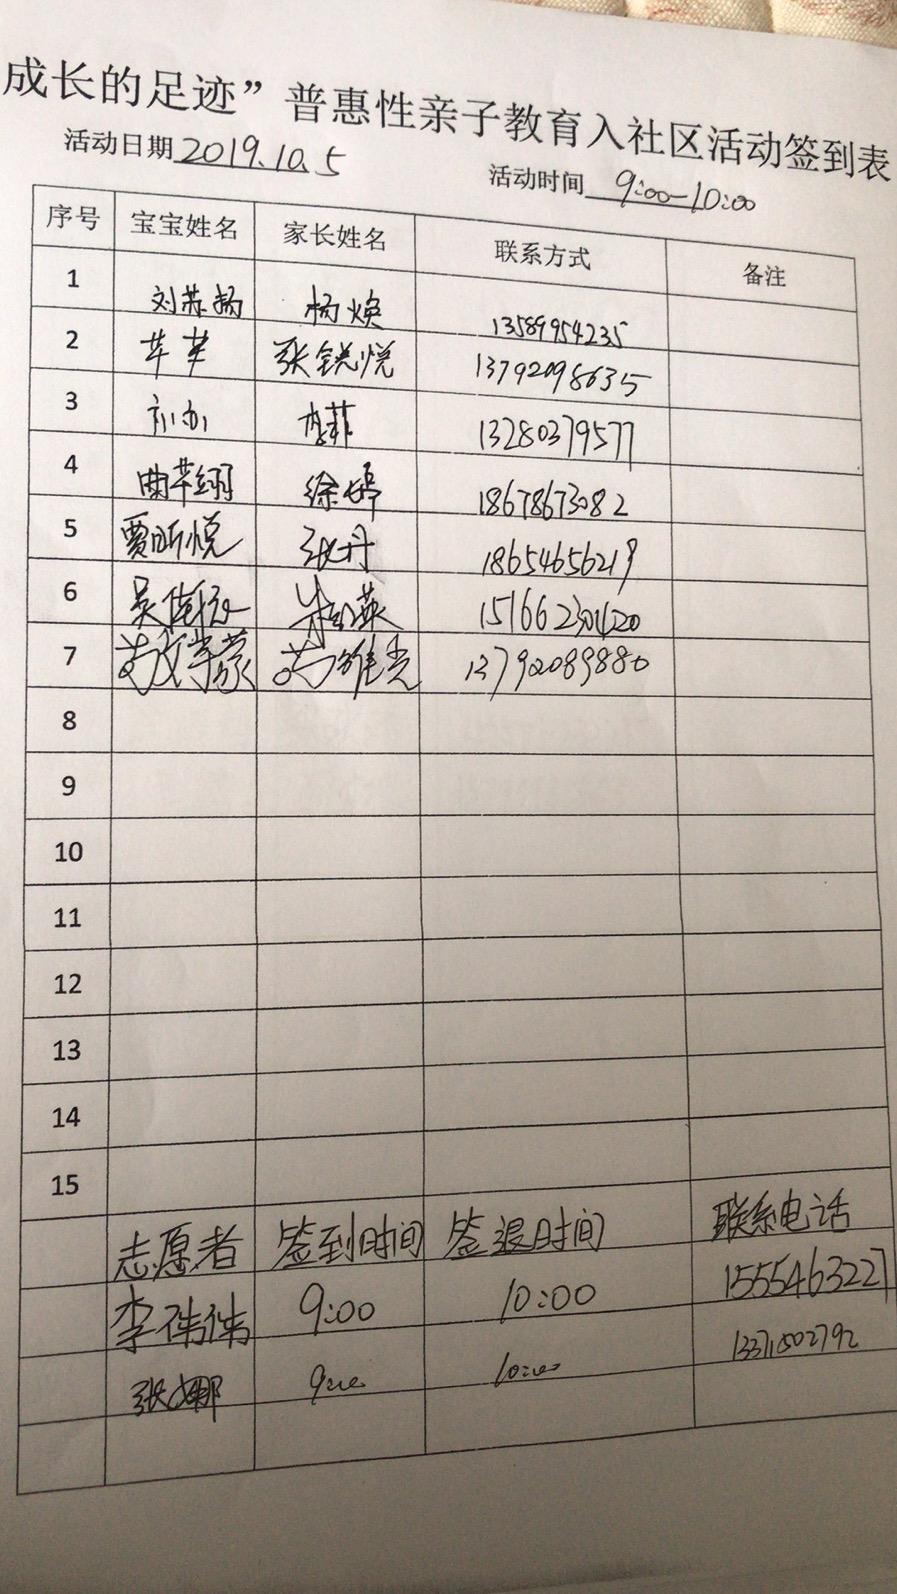 成长的足迹”普惠性亲子教育入社区活动签到表
活动日期 2019.10.5 活动时间 9:00-10:00
序号 宝宝姓名 家长姓名 联系方式 备注
1 刘苏扬 杨焕 13589954235
2 苹苹 张锐悦 13792098635
3 李菲 13280379577
4 曲芊翊 徐婷 18678673082
5 贾昕悦 张丹 18654656219
6 吴 英
7 苏 蒙 苏维光 13792089880
8
9
10
11
12
13
14
15
志愿者 签到时间 签退时间 联系电话
李伟伟 9:00 10:00 15554632271
张娜 9:00 10:00 13371502792